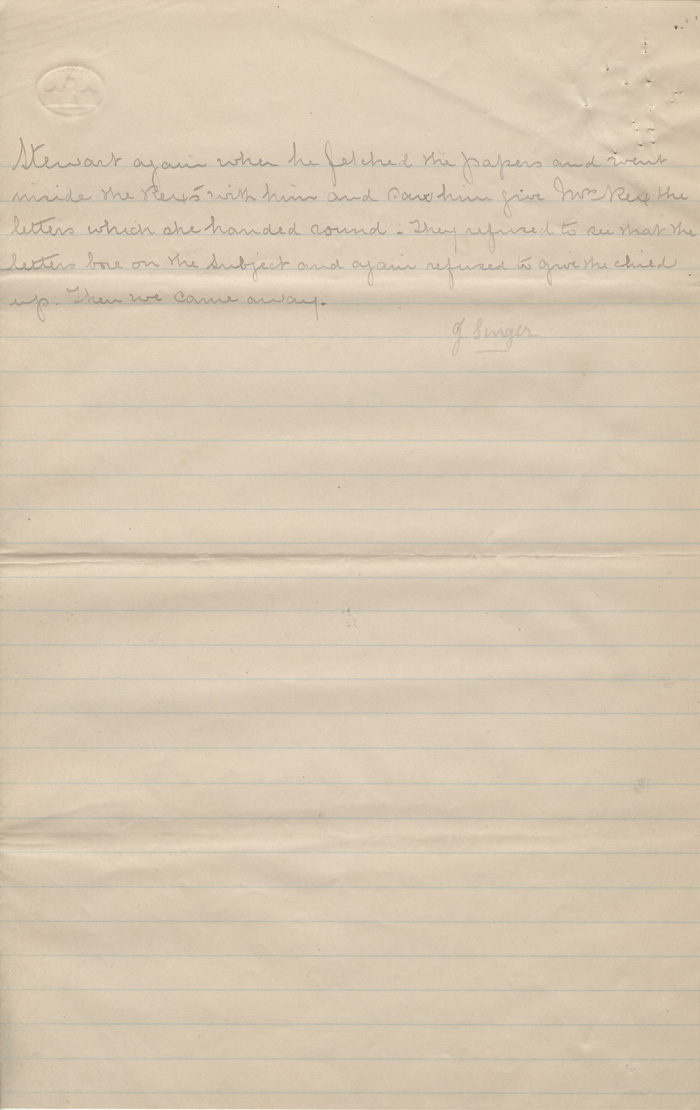 Stewart again when he fetched the papers and went
inside the Rex's with him and saw him give Mrs Rex the
letters which she handed round. They refused to see that the
letters bore on the subject and again refused to give the child
up. Then we came away.
J. Singer